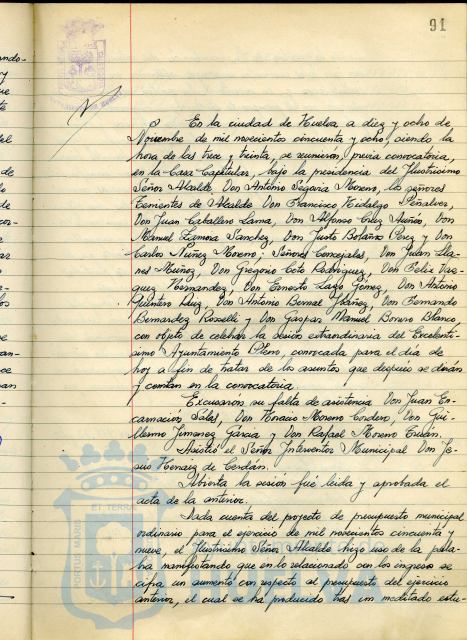 91
En la ciudad de Huelva a diez y ocho de
Noviembre de mil novecientos cincuenta y ocho, siendo la
hora de las trece y treinta, se reunieron, previa convocatoria,
en la Casa Capitular, bajo la presidencia del Ilustrísimo
Señor Alcalde, Don Antonio Segovia Moreno, los señores
Tenientes de Alcalde Don Francisco Hidalgo Peñalver,
Don Juan Caballero Lama, Don Alfonso Cruz
Manuel Zamora Sanchez, Don Justo Bolaños Perez y Don
Carlos Nuñez Moreno; Señores Concejales, Don Juan Lla-
nes Muñoz, Don Gregorio Coto Rodriguez, Don Felix Vaz-
quez Hernandez, Don Ernesto Lazo Gomez, Don Antonio
Quintero Ruiz, Don Antonio Bernal Ybañez, Don Fernando
Bernardez Roselli y Don Gaspar Manuel Borrero Blanco,
con objeto de celebrar la sesión extraordinaria del Excelentí-
simo Ayuntamiento Pleno, convocada para el día de
hoy al fin de tratar de los asuntos que después se dirán
y constan en la convocatoria.
Excusaron su falta de asistencia Don Juan En-
carnación Salas, Don Horacio Moreno Cordero, Don Gui-
llermo Jimenez Garcia y Don Rafael Moreno
Asistió el Señor Interventor Municipal Don Je-
sus de Cerdan.
Abierta la sesión fué leida y aprobada el
acta de la anterior.
Dada cuenta del proyecto de presupuesto municipal
ordinario para el ejercicio de mil novecientos cincuenta y
nueve, el Ilustrísimo Señor Alcalde hizo uso de la pala-
bra manifestando que en lo relacionado con los ingresos se
cifra un aumento con respecto al presupuesto del ejercicio
anterior, el cual se ha producido tras un meditado estu-